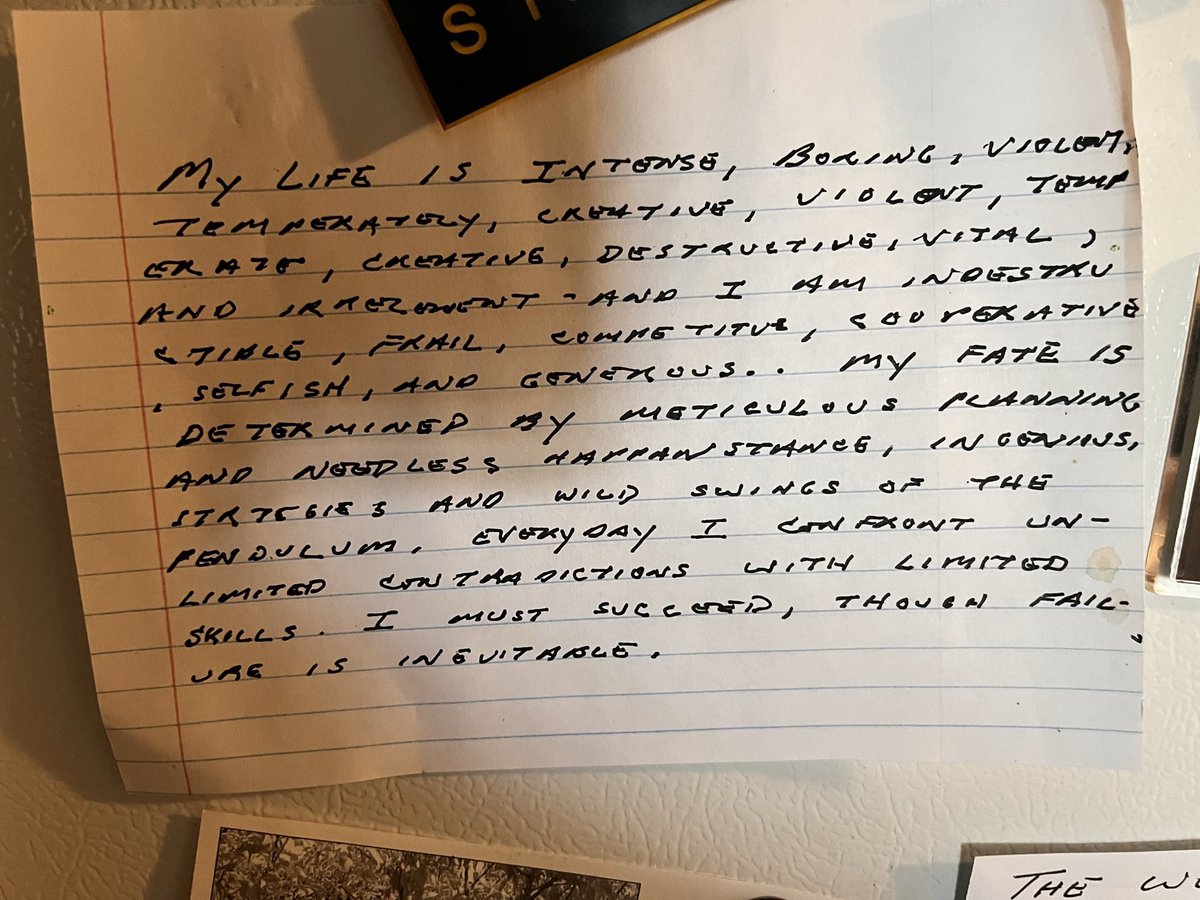 S
MY LIFE IS INTENSE, BORING, VIOLENT,
TEMPERATELY, CREATIVE, VIOLENT, TEMP
ERATE, CREATIVE, DESTRUCTIVE, VITAL,
AND IRRELEVENT - AND I AM INDESTRU
CTIBLE, FRAIL, COMPETITVE, COOPERATIVE
, SELFISH, AND GENEROUS.. MY FATE IS
DETERMINED BY METICULOUS PLANNING
AND NEEDLESS HAPPANSTANCE, INGENIOUS,
STRTEGIES AND WILD SWINGS OF THE
PENDULUM. EVERYDAY I CONFRONT UN-
LIMITED CONTRADICTIONS WITH LIMITED
SKILLS. I MUST SUCCEED, THOUGH FAIL-
URE IS INEVITABLE.
THE